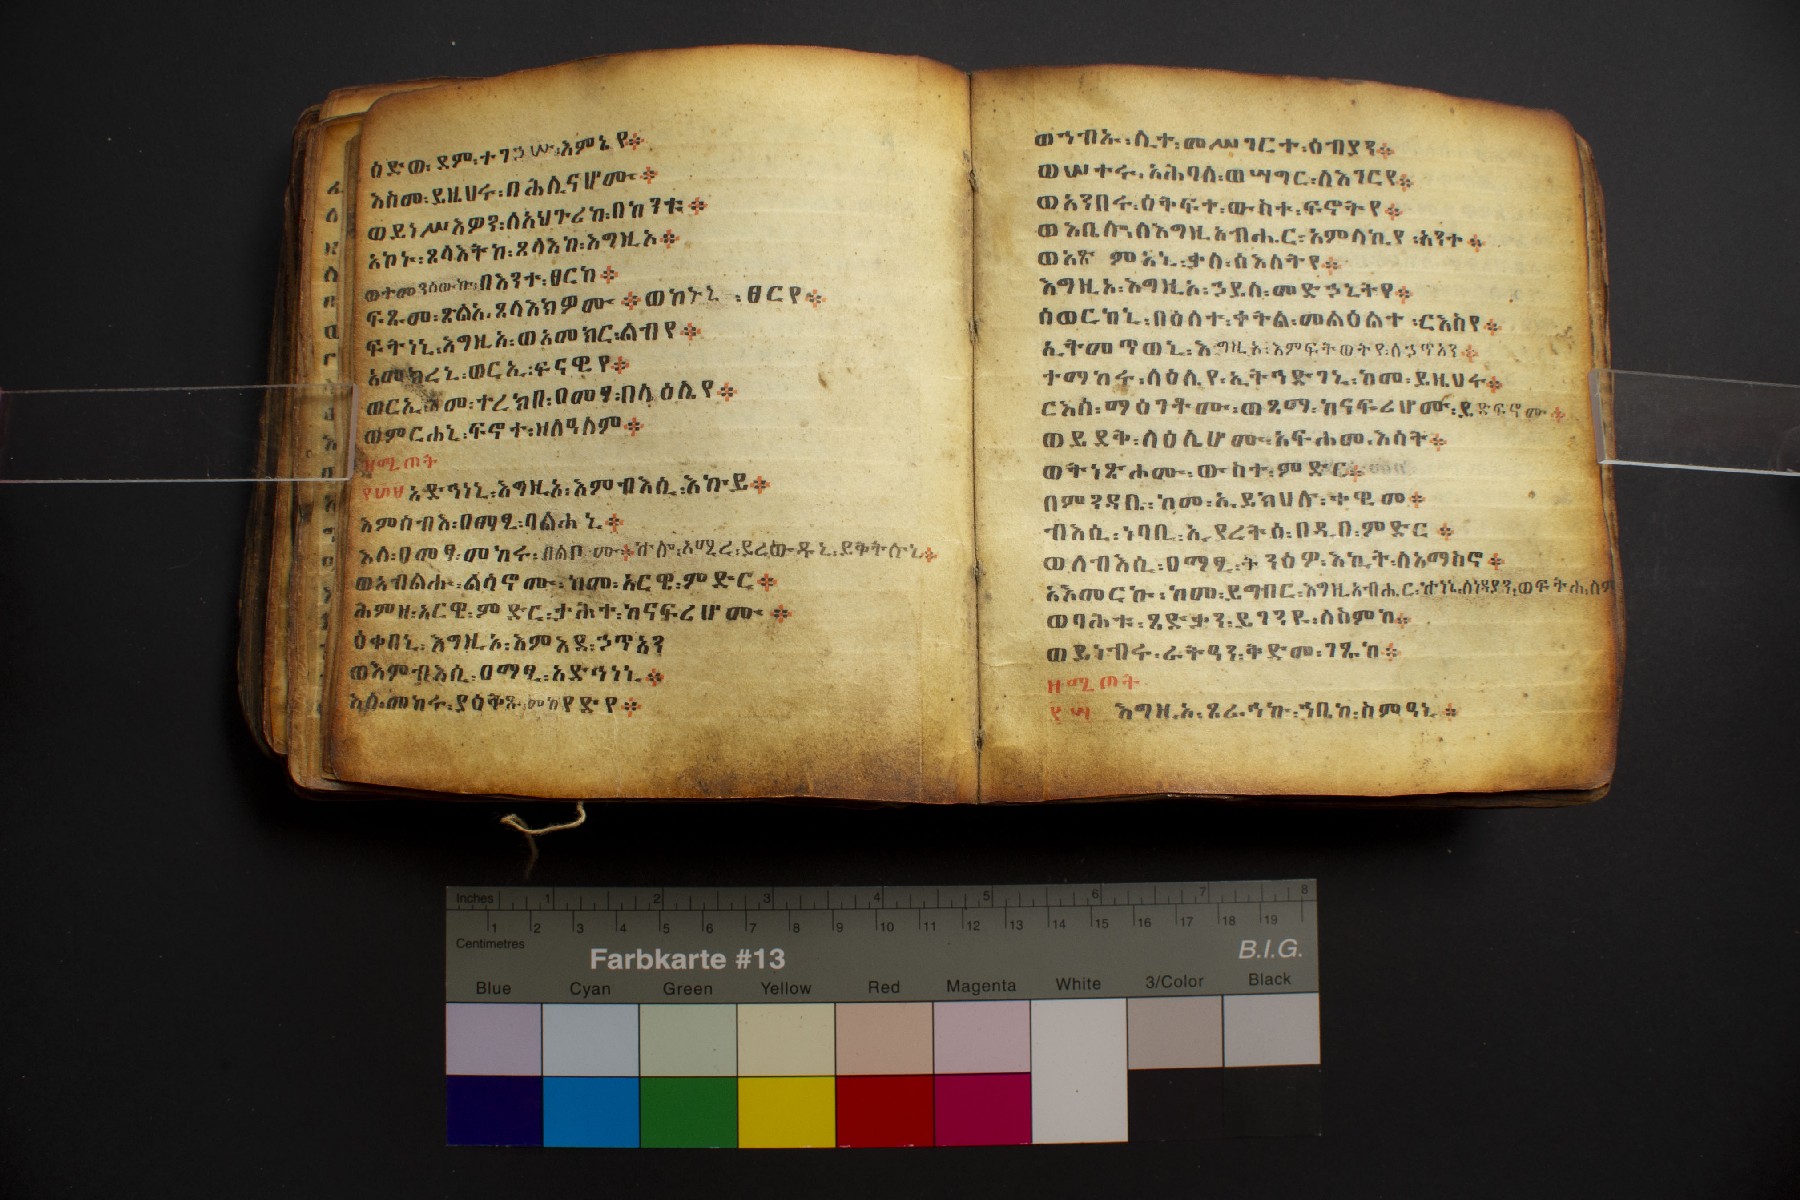 ዕድወ፡ ደም፡ ተገኃሡ፡ እምኔየ፨
እስመ፡ ይዚህሩ፡ በሕሊናሆሙ፨
ወይነሥእዎን፡ ለአህጉሪከ፡ በከንቱ፨
አኮኑ፡ ጸላእትከ፡ ጸላእኩ፡ እግዚኦ፨
ወተመንሰውኩ፡ በእንተ፡ ፀርከ፨
ፍጹመ፡ ጽልአ፡ ጸላእክዎሙ፨ ወከኑኒ፡ ፀርየ፨
ፍትነኒ፡ እግዚኦ፡ ወአመክር፡ ልብየ፨
አመክረኒ፡ ወርኢ፡ ፍናዊየ፨
ወርኢ፡ እመ፡ ተረክበ፡ ዐመፃ፡ በላዕሌየ፨
ወምርሐኒ፡ ፍኖተ፡ ዘለዓለም፨
ዘሚጦት
አድኅነኒ፡ እግዚኦ፡ እምብእሲ፡ እኩይ፨
እምብእሲ፡ ዐማፂ፡ ባልሐኒ፨
እለ፡ ዐመፃ፡ መከሩ፡ በልቦሙ፨ ኵሎ፡ አሚረ፡ ይረውዱኒ፡ ይቅትሉኒ፨
ወአብልሑ፡ ልሳኖሙ፡ ከመ፡ አርዌ፡ ምድር፨
ሕምዘ፡ አርዌ፡ ምድር፡ ታሕተ፡ ከናፍሪሆሙ፨
ዕቀበኒ፡ እግዚኦ፡ እምእደ፡ ኃጥአን
ወእምብእሲ፡ ዐማፂ፡ አድኅነኒ፨
እለ፡ መከሩ፡ ያዕቅጹ፡ መከየድየ፨
ወኀብኡ፡ ሊተ፡ መሥገርተ፡ ዕብያን፨
ወሠተሩ፡ አሕባለ፡ ወሣግር፡ ለእገርየ፨
ወአንበሩ፡ ዕቅፍተ፡ ውስተ፡ ፍኖትየ፨
ወእቤሎ፡ ለእግዚአብሔር፡ አምላኪየ፡ አንተ፨
ወአጽምአኒ፡ ቃለ፡ ስእለትየ፨
እግዚኦ፡ እግዚኦ፡ ኃይለ፡ መድኃኒትየ፨
ሰወርከኒ፡ በዕለተ፡ ቀትል፡ መልዕልተ፡ ርእስየ፨
ኢትመጥወኒ፡ እግዚኦ፡ እምፍትወትየ፡ ለኃጥአን፨
ተማከሩ፡ ላዕሌየ፡ ኢትኅድገኒ፡ ከመ፡ ይዚህሩ፨
ርእሰ፡ ማዕገቶሙ፡ ወጻማ፡ ከናፍሪሆሙ፡ ይድፍኖሙ፨
ወይደቅ፡ ላዕሌሆሙ፡ አፍሐመ፡ እሳት፨
ወትነጽሖሙ፡ ውስተ፡ ምድር፨
በምንዳቤ፡ ከመ፡ ኢይክህሉ፡ ተዊመ፨
ብእሲ፡ ነባቢ፡ ኢያረትዕ፡ በዲበ፡ ምድር፨
ወለብእሲ፡ ዐማፂ፡ ትንዕዎ፡ እኪት፡ ለአማስኖ፨
አእመርኩ፡ ከመ፡ ይገብር፡ እግዚአብሔር፡ ኵነኔ፡ ለነዳያን፡ ወፍትሐ፡ ለም
ወባሕቱ፡ ጻድቃን፡ ይገንዩ፡ ለስምከ፨
ወይነብሩ፡ ራትዓን፡ ቅድመ፡ ገጹከ፨
ዘሚጦት
እግዚኦ፡ ጸራኅኩ፡ ኀቤከ፡ ስምዓኒ፨
Inches 1 2 3 4 5 6 7 8
1 2 3 4 5 6 7 8 9 10 11 12 13 14 15 16 17 18 19
Centimetres
Farbkarte #13
B.I.G.
Blue Cyan Green Yellow Red Magenta White 3/Color Black